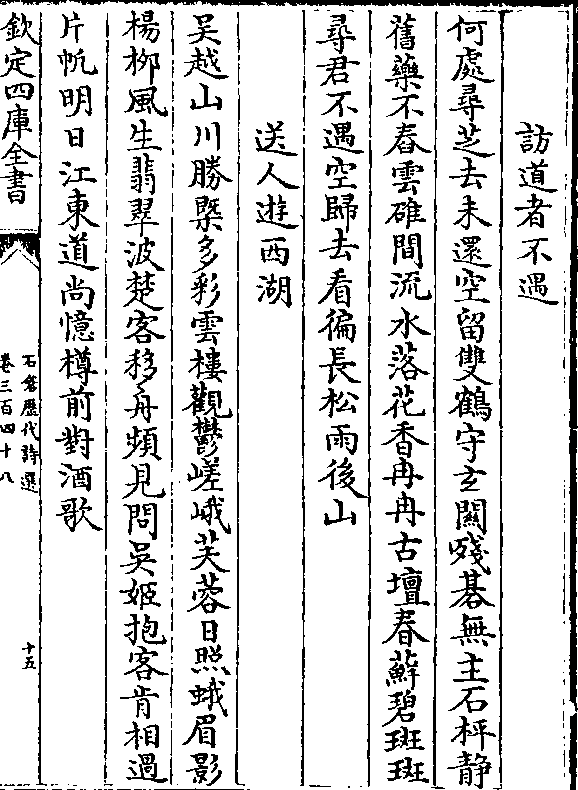 訪道者不遇
何處尋芝去未還空留雙鶴守玄關殘碁無主石枰静
舊藥不舂雲碓間流水落花香冉冉古壇春蘚碧斑斑
尋君不遇空歸去看徧長松雨後山
送人遊西湖
吴越山川勝槩多彩雲樓觀鬱嵯峨芙蓉日照蛾眉影
楊栁風生翡翠波楚客移舟頻見問吴姬抱客肯相過
片帆明日江東道尚憶樽前對酒歌
欽定四庫全書
石倉歴代詩選
卷三百四十八
十五